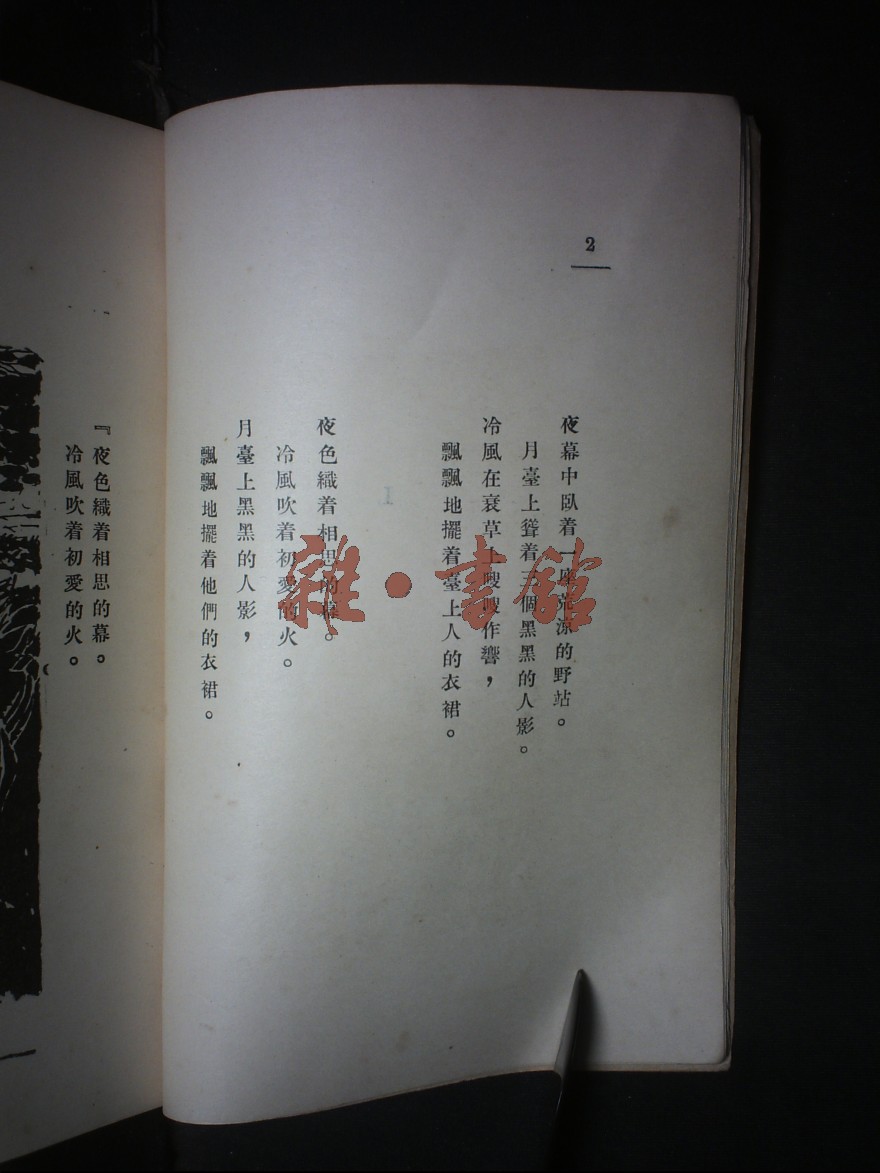 2
夜幕中臥着一座荒涼的野站。
月臺上聳着個黑黑的人影。
冷風在衰草上嗖嗖作響，
飄飄地擺着臺上人的衣裙。
夜色織着相思的幕。
冷風吹着初愛的火。
月臺上黑黑的人影，
飄飄地擺着他們的衣裙。
『夜色織着相思的幕。
冷風吹着初愛的火。
雜·書館